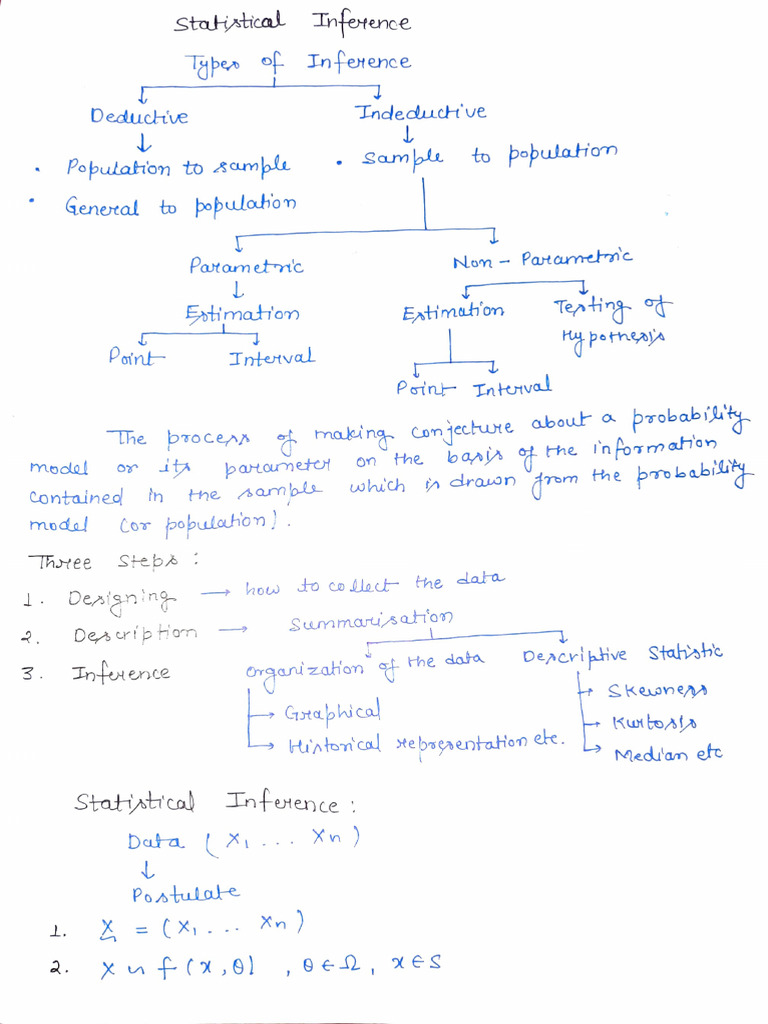 Statistical Inference
Types of Inference
Deductive Indeductive
• Population to sample • Sample to population
• General to population
Parametric Non-Parametric
Estimation Estimation Testing of
Hypothesis
Point Interval
Point Interval
The process of making conjecture about a probability
model or its parameter on the basis of the information
contained in the sample which is drawn from the probability
model (or population).
Three Steps :
1. Designing → how to collect the data
2. Description → Summarisation
3. Inference Organization of the data Descriptive Statistic
→ Graphical → Skewness
→ Historical representation etc. → Kurtosis
→ Median etc
Statistical Inference :
Data (X1 ... Xn)
↓
Postulate
1. X = (X1 ... Xn)
2. X ~ f(x,θ) , θ ∈ Ω, x ∈ S